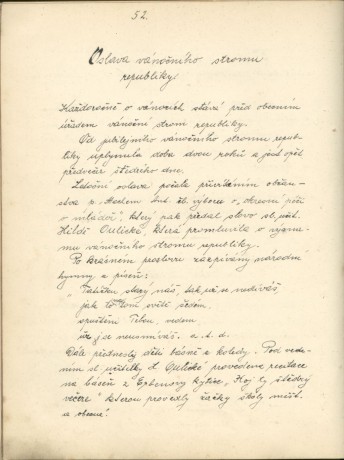 52.
Oslava vánočního stromu
republiky.
Každoročně o vánocích stává před obecním
úřadem vánoční strom republiky.
Od jubilejního vánočního stromu repub-
liky uplynula doba dvou roků a jest opět
předvečer štědrého dne.
Letošní oslava počala přivítáním občan-
stva p. čl. výboru "okresní péče
o mládež", který pak předal slovo sl. uč.
Hildě Oulické, která promluvila o význa-
mu vánočního stromu republiky.
Po krásném proslovu zazpívány národní
hymny a píseň:
"Tatíčku starý náš,
jak to voní světě šedém,
spustím Tebou, vedem
už je neusmíváš. a. t. d.
Dále přednesly děti básně a koledy. Pod vede-
ním sl. učitelky H. Oulické provedena recitace
na báseň z Erbenovy kytice "Hoj ty štědrý
večere" kterou provedly žačky školy měšť.
a obecné.